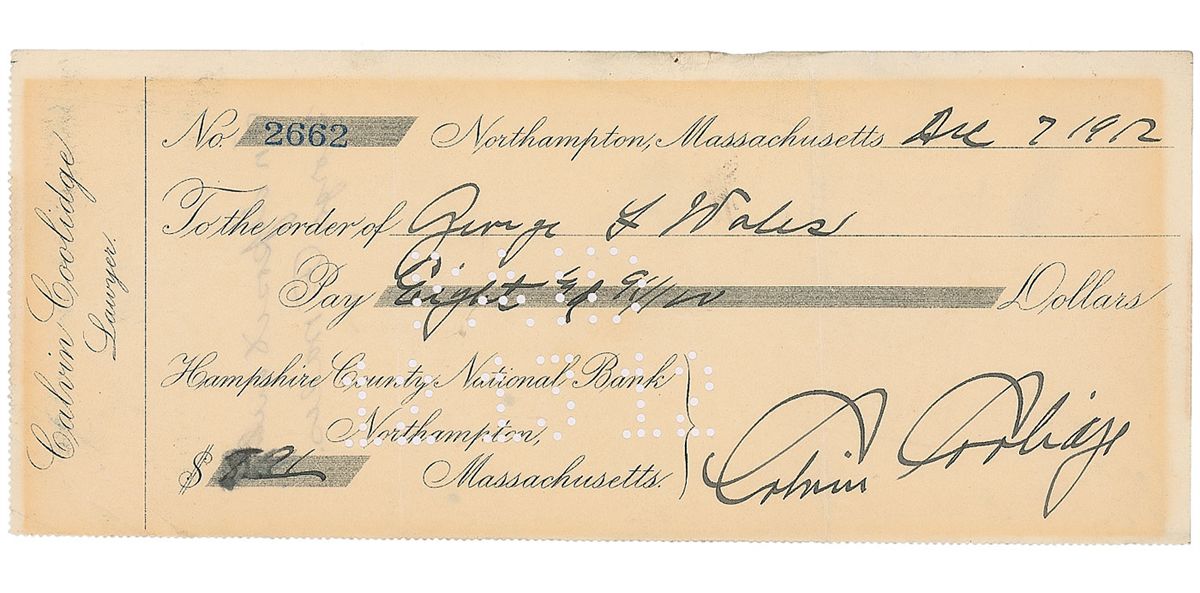 Calvin Coolidge
Lawyer.
No. 2662 Northampton, Massachusetts Dec 7 1912
To the order of George L Wales
Pay Eight Dollars
Hampshire County National Bank
Northampton,
Massachusetts.
$
Calvin Coolidge